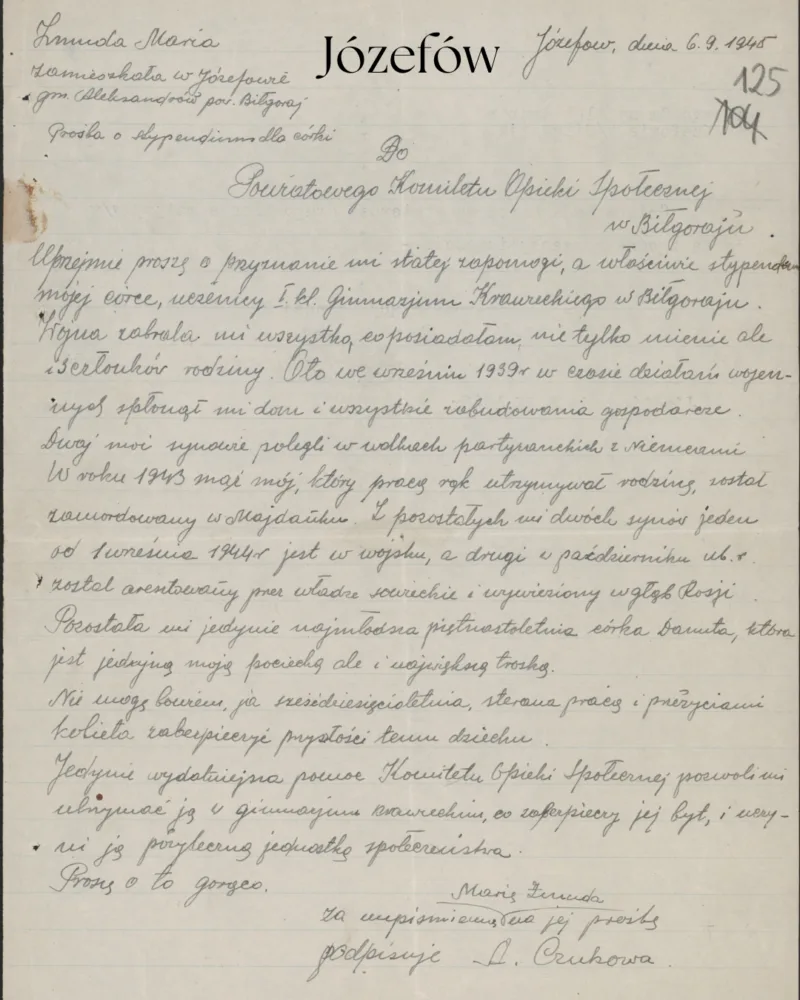 Żmuda Maria
Józefów
Józefow, dnia 6.9.1945
zamieszkała w Józefowie
125
gm. Aleksandrów pow. Biłgoraj
104
Prośba o stypendium dla córki
Do
Powiatowego Komitetu Opieki Społecznej
w Biłgoraju.
Uprzejmie proszę o przyznanie mi stałej zapomogi, a właściwie stypendium
mojej córce, uczennicy I. kl. Gimnazjum Krawieckiego w Biłgoraju.
Wojna zabrała mi wszystko, co posiadałam, nie tylko mienie ale
i 3 członków rodziny. Oto we wrześniu 1939r w czasie działań wojen-
nych spłonął mi dom i wszystkie zabudowania gospodarcze.
Dwaj moi synowie polegli w walkach partyzanckich z Niemcami
W roku 1943 mąż mój, który pracą rąk utrzymywał rodzinę, został
zamordowany w Majdanku. Z pozostałych mi dwóch synów jeden
od 1 września 1944r jest w wojsku, a drugi w październiku ub. r.
został aresztowany przez władze sowieckie i wywieziony w głąb Rosji.
Pozostała mi jedynie najmłodsza piętnastoletnia córka Danuta, która
jest jedyną moją pociechą ale i największą troską.
Nie mogę bowiem, ja sześćdziesięcioletnia, sterana pracą i przeżyciami
kobieta zabezpieczyć przyszłości temu dziecku.
Jedynie wydatniejsza pomoc Komitetu Opieki Społecznej pozwoli mi
utrzymać ją w gimnazjum krawieckim, co zabezpieczy jej byt, i uczy-
ni ją pożyteczną jednostką społeczeństwa.
Proszę o to gorąco.
Marię Żmuda
za niepiśmienną na jej prośbę
podpisuje A. Czukowa